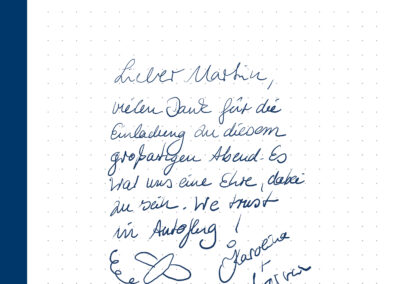 Lieber Martin,
vielen Dank für die
Einladung zu diesem
großartigen Abend. Es
war uns eine Ehre, dabei
zu sein. We trust
in Autoflug!
Karolina
+